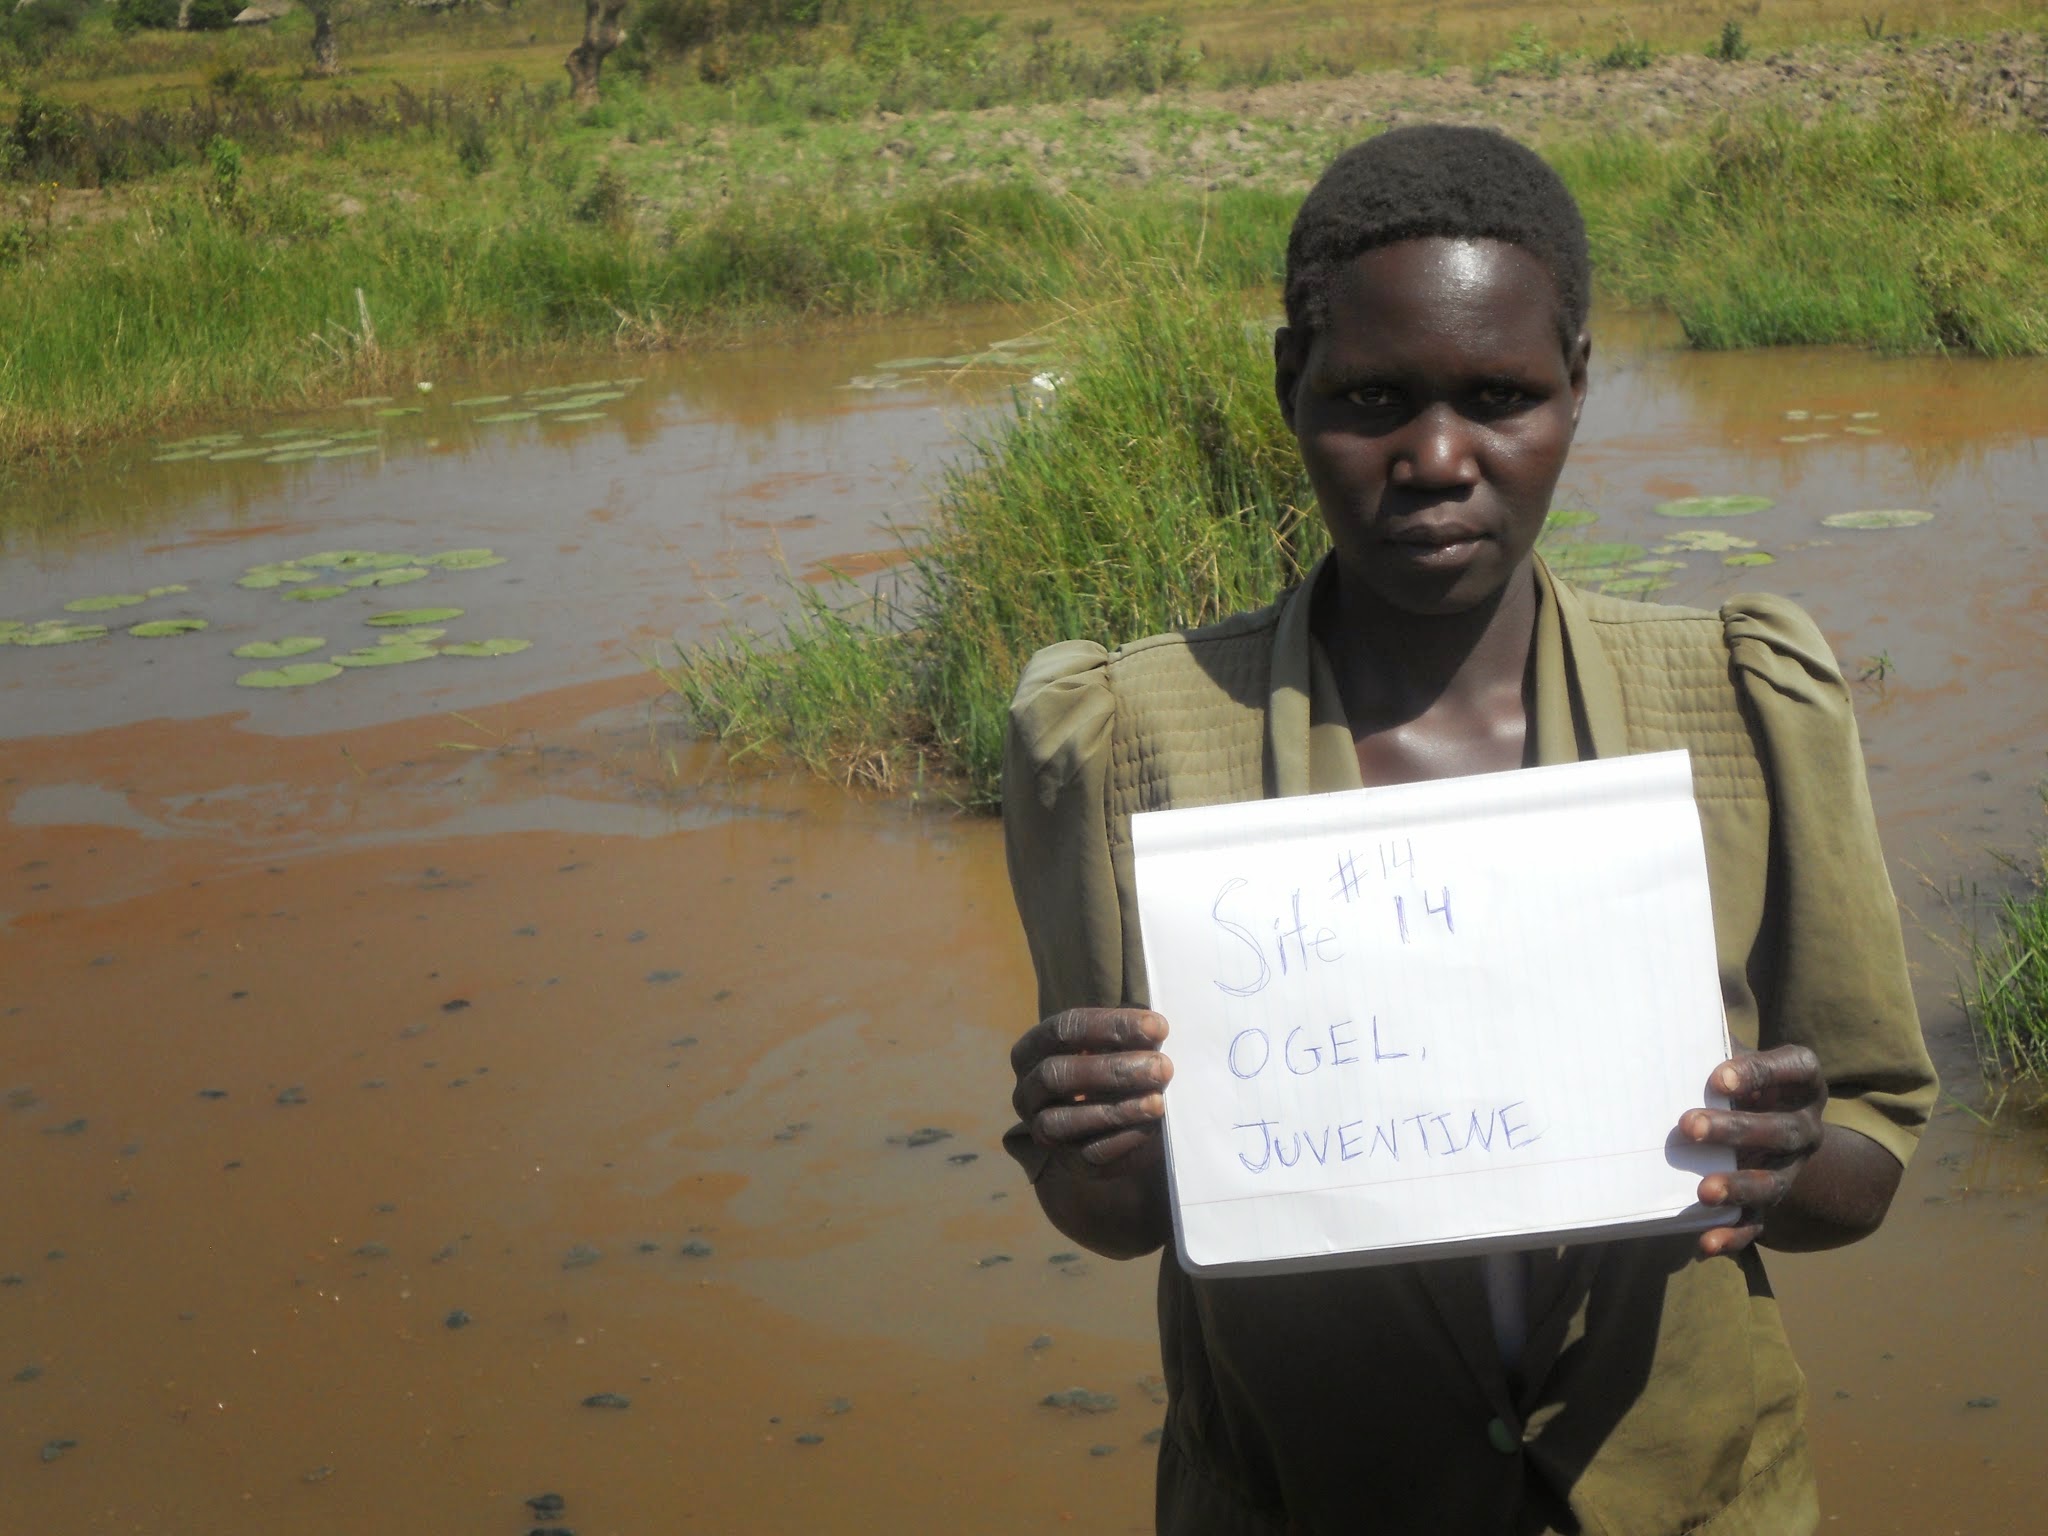 #14
Site 14
OGEL,
JUVENTINE